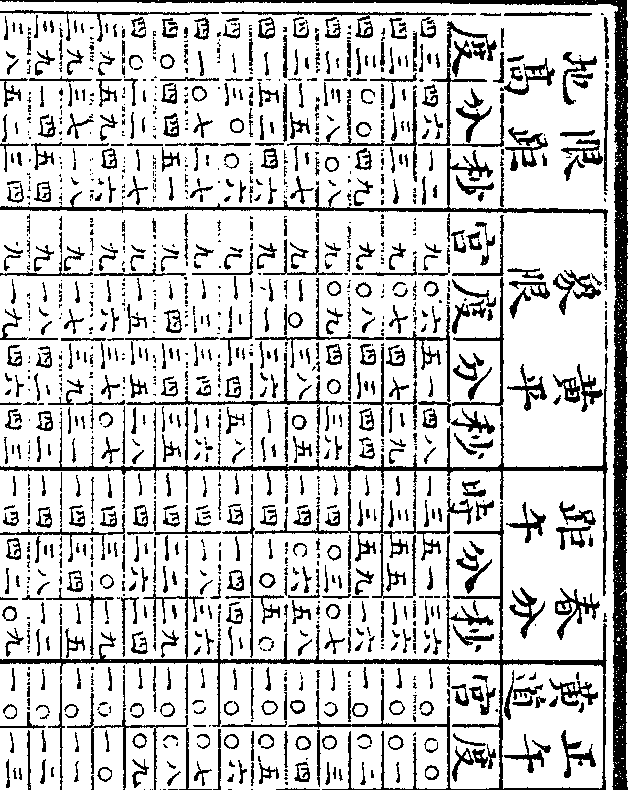 地高 限距 象限 黃平 距午 春分 黃道 正午
度 分 秒 宮 度 分 秒 時 分 秒 宮 度
四三 四六 一三 九 〇六 五一 四八 一三 五一 三六 一〇 〇〇
四三 二三 三一 九 〇七 四七 二九 一三 五五 二六 一〇 〇一
四三 〇〇 四九 九 〇八 四三 四四 一三 五九 一六 一〇 〇二
四二 三八 〇八 九 〇九 四〇 三六 一四 〇三 〇七 一〇 〇三
四二 一五 二七 九 一〇 三八 〇五 一四 〇六 五八 一〇 〇四
四一 五二 四六 九 一一 三六 一二 一四 一〇 五〇 一〇 〇五
四一 三〇 〇六 九 一二 三四 五八 一四 一四 四二 一〇 〇六
四一 〇七 二七 九 一三 三四 二六 一四 一八 三六 一〇 〇七
四〇 四四 五一 九 一四 三四 三五 一四 二二 二九 一〇 〇八
四〇 二二 一七 九 一五 三五 二八 一四 二六 二四 一〇 〇九
三九 五九 四六 九 一六 三七 〇七 一四 三〇 一九 一〇 一〇
三九 三七 一八 九 一七 三九 三一 一四 三四 一五 一〇 一一
三九 一四 五四 九 一八 四二 四二 一四 三八 一二 一〇 一二
三八 五二 三四 九 一九 四六 四三 一四 四二 〇九 一〇 一三